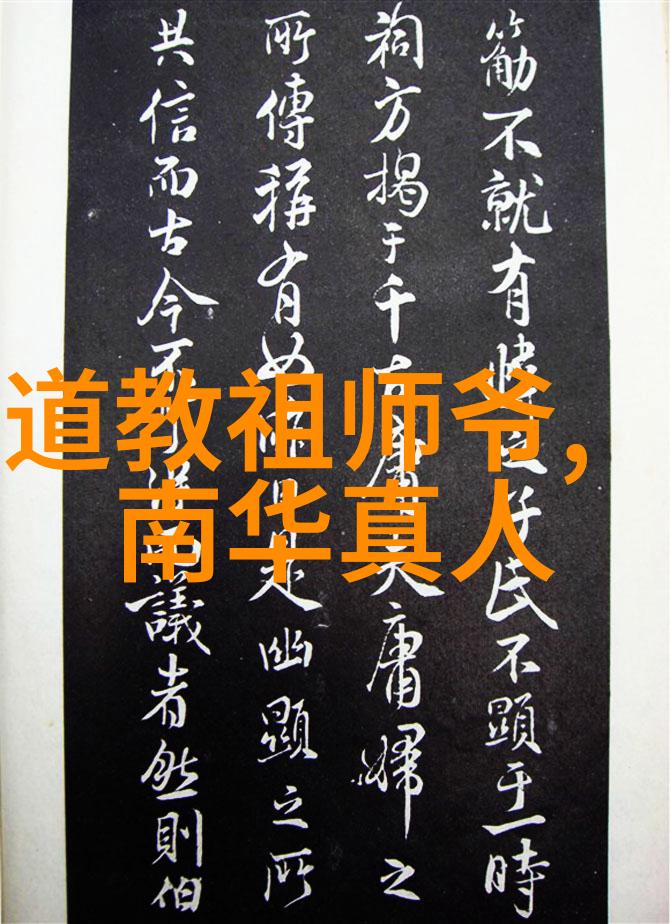 道教祖师爷,
南华真人
不就有之氏不顯于一時
祠方揭于千古庸夫庸婦之
所傳稱有如是幽顯之所
共信而古今不議者然則伯